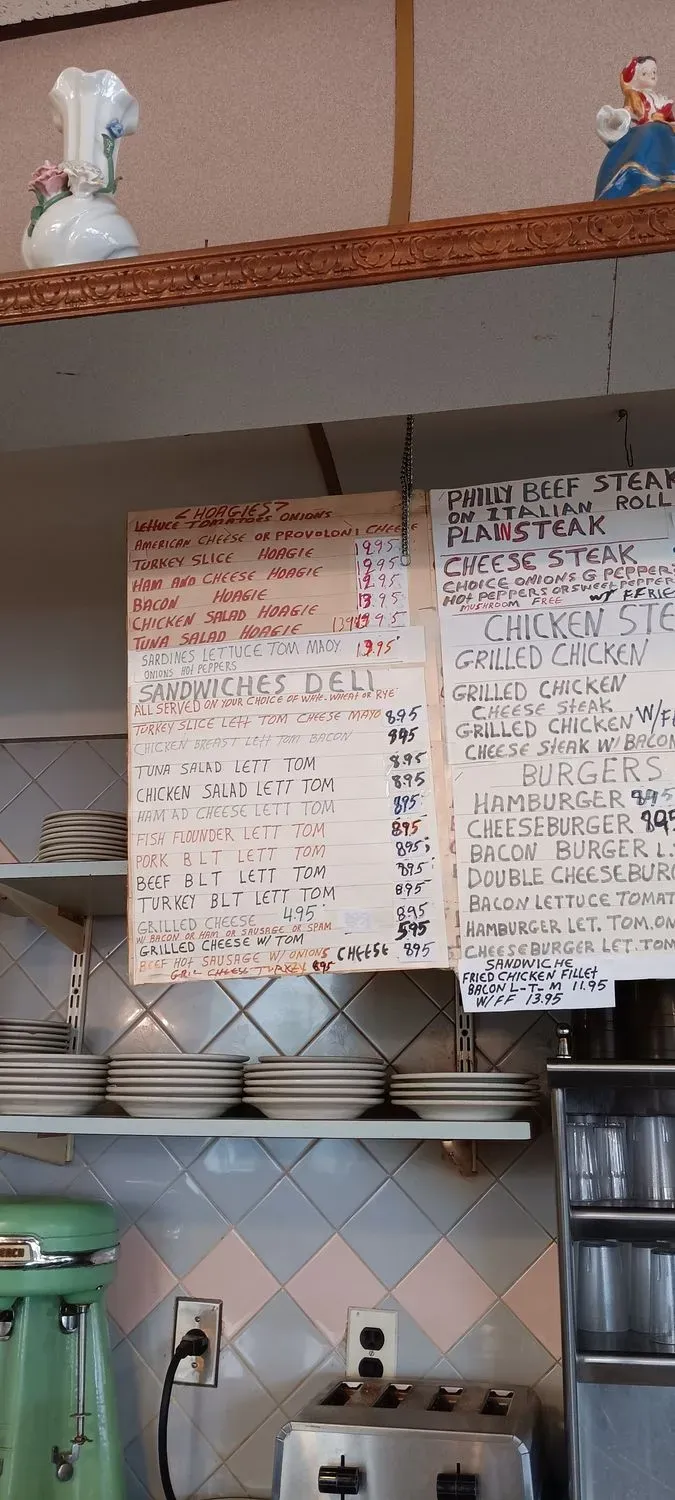 HOAGIES
LETTUCE TOMATOES ONIONS
AMERICAN CHEESE OR PROVOLONI CHEESE
TURKEY SLICE HOAGIE 12.95
HAM AND CHEESE HOAGIE 12.95
BACON HOAGIE 12.95
CHICKEN SALAD HOAGIE 13.95
TUNA SALAD HOAGIE
SARDINES LETTUCE TOM MAOY 13.95
ONIONS HOT PEPPERS
SANDWICHES DELI
ALL SERVED ON YOUR CHOICE OF WHTE. WHEAT OR RYE
TURKEY SLICE LETT TOM CHEESE MAYO 895
CHICKEN BREAST LETT TOM BACON 895
TUNA SALAD LETT TOM 895
CHICKEN SALAD LETT TOM 895
HAM AD CHEESE LETT TOM 895
FISH FLOUNDER LETT TOM 895
PORK BLT LETT TOM 895
BEEF BLT LETT TOM 895
TURKEY BLT LETT TOM 895
GRILLED CHEESE 4.95 895
W/ BACON OR HAM OR SAUSAGE OR SPAM
GRILLED CHEESE W/ TOM 595
BEEF HOT SAUSAGE W/ ONIONS CHEESE 895
GRIL CHEESE TURKEY 895
PHILLY BEEF STEAK
ON ITALIAN ROLL
PLAIN STEAK
CHEESE STEAK
CHOICE ONIONS G PEPPER
HOT PEPPERS OR SWEET PEPPER
MUSHROOM FREE WT F.FRIE
CHICKEN STE
GRILLED CHICKEN
GRILLED CHICKEN
CHEESE STEAK
GRILLED CHICKEN W/F
CHEESE STEAK W/ BACON
BURGERS
HAMBURGER 895
CHEESEBURGER 895
BACON BURGER L.
DOUBLE CHEESEBURG
BACON LETTUCE TOMAT
HAMBURGER LET. TOM. ON
CHEESEBURGER LET. TOM
SANDWICHE
FRIED CHICKEN FILLET
BACON L-T-M 11.95
W/FF 13.95